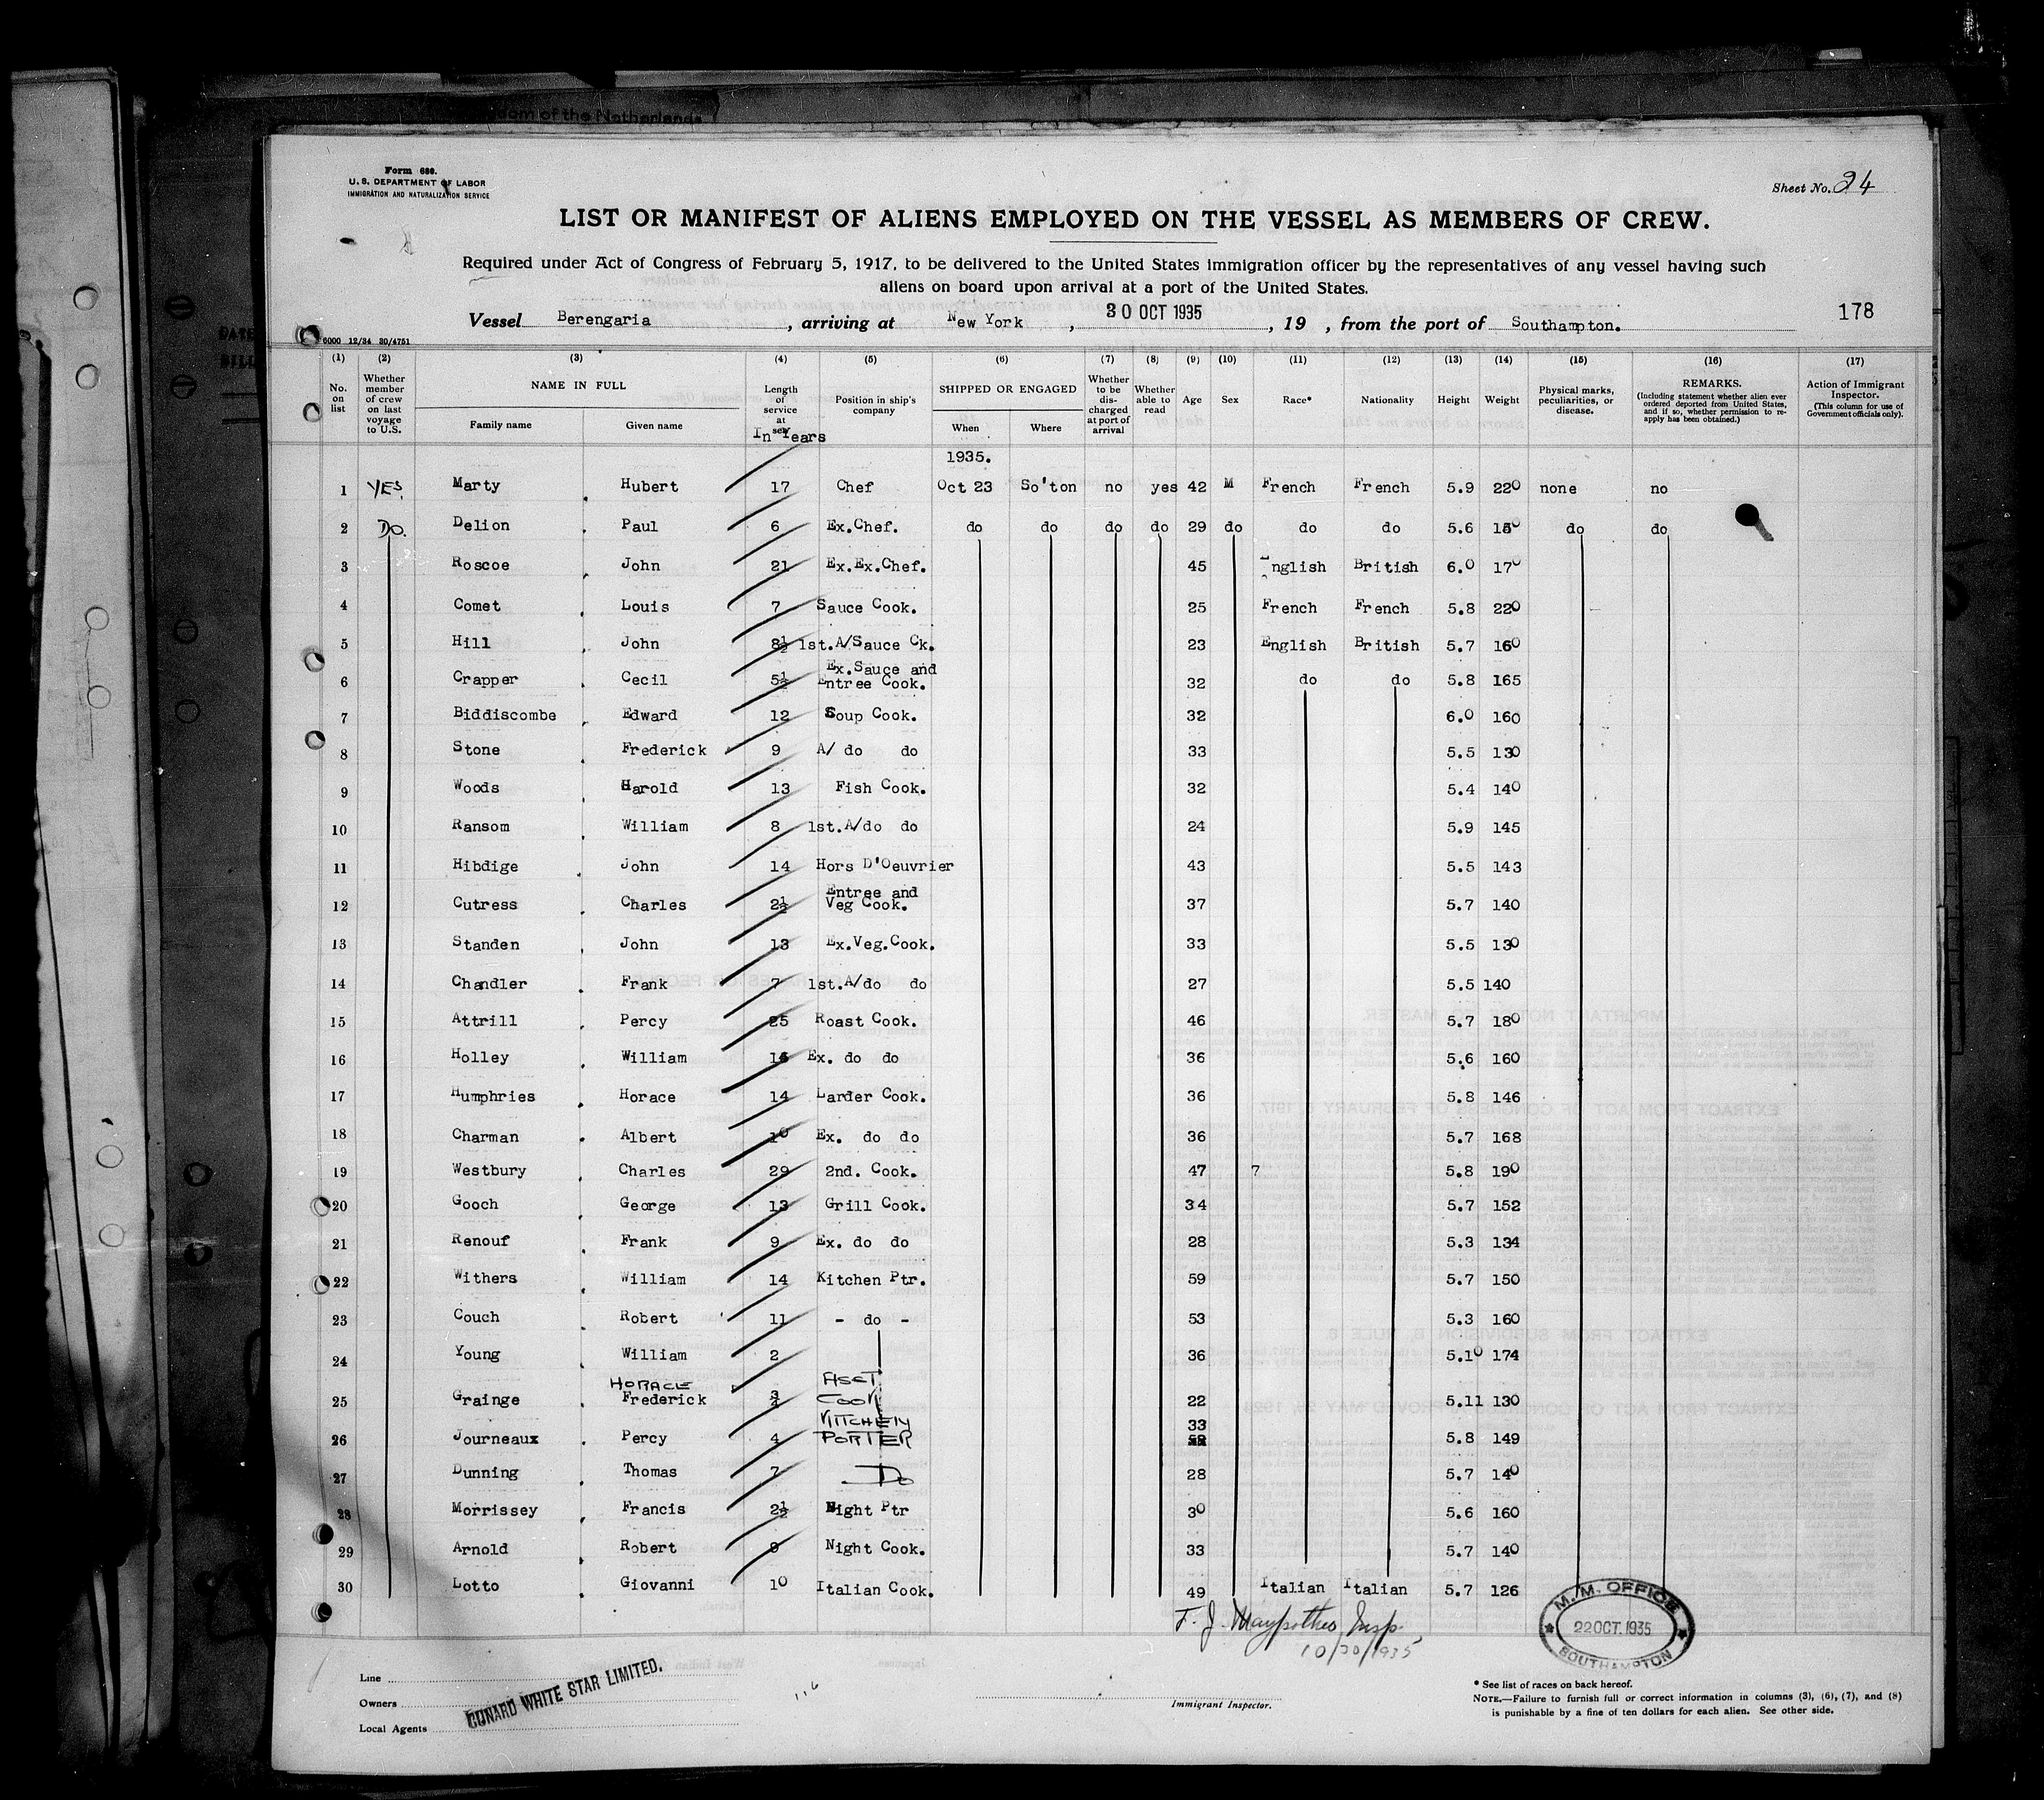 dom of the Netherlands
Form 680.
U. S. DEPARTMENT OF LABOR
IMMIGRATION AND NATURALIZATION SERVICE
Sheet No. 24
LIST OR MANIFEST OF ALIENS EMPLOYED ON THE VESSEL AS MEMBERS OF CREW.
Required under Act of Congress of February 5, 1917, to be delivered to the United States immigration officer by the representatives of any vessel having such
aliens on board upon arrival at a port of the United States.
Vessel Berengaria, arriving at New York, 30 OCT 1935, 19 , from the port of Southampton. 178
6000 12/34 30/4751
(1) (2) (3) (4) (5) (6) (7) (8) (9) (10) (11) (12) (13) (14) (15) (16) (17)
No. on list
Whether member of crew on last voyage to U.S.
NAME IN FULL
Family name Given name
Length of service at sea
In Years
Position in ship's company
SHIPPED OR ENGAGED
When Where
Whether to be discharged at port of arrival
Whether able to read
Age Sex Race* Nationality Height Weight
Physical marks, peculiarities, or disease.
REMARKS.
(Including statement whether alien ever ordered deported from United States, and if so, whether permission to reapply has been obtained.)
Action of Immigrant Inspector.
(This column for use of Government officials only).
1935.
1 YES. Marty , Hubert 17 Chef Oct 23 So'ton no yes 42 M French French 5.9 220 none no
2 DO. Delion , Paul 6 Ex.Chef. do do do do 29 do do do 5.6 150 do do
3 Roscoe , John 21 Ex.Ex.Chef. 45 English British 6.0 170
4 Comet , Louis 7 Sauce Cook. 25 French French 5.8 220
5 Hill , John 8½ 1st.A/Sauce Ck. 23 English British 5.7 160
6 Crapper , Cecil 5½ Ex.Sauce and Entree Cook. 32 do do 5.8 165
7 Biddiscombe , Edward 12 Soup Cook. 32 6.0 160
8 Stone , Frederick 9 A/ do do 33 5.5 130
9 Woods , Harold 13 Fish Cook. 32 5.4 140
10 Ransom , William 8 1st.A/do do 24 5.9 145
11 Hibdige , John 14 Hors D'Oeuvrier 43 5.5 143
12 Cutress , Charles 2½ Entree and Veg Cook. 37 5.7 140
13 Standen , John 13 Ex.Veg.Cook. 33 5.5 130
14 Chandler , Frank 7 1st.A/do do 27 5.5 140
15 Attrill , Percy 25 Roast Cook. 46 5.7 180
16 Holley , William Ex. do do 36 5.6 160
17 Humphries , Horace 14 Larder Cook. 36 5.8 146
18 Charman , Albert 10 Ex. do do 36 5.7 168
19 Westbury , Charles 29 2nd. Cook. 47 7 5.8 190
20 Gooch , George 13 Grill Cook. 34 5.7 152
21 Renouf , Frank 9 Ex. do do 28 5.3 134
22 Withers , William 14 Kitchen Ptr. 59 5.7 150
23 Couch , Robert 11 - do - 53 5.3 160
24 Young , William 2 36 5.10 174
25 Grainge , HORACE Frederick ¾ ASST COOK 22 5.11 130
26 Journeaux , Percy 4 KITCHEN PORTER 33 5.8 149
27 Dunning , Thomas 7 Do 28 5.7 140
28 Morrissey , Francis 2½ Night Ptr 30 5.6 160
29 Arnold , Robert 9 Night Cook. 33 5.7 140
30 Lotto , Giovanni 10 Italian Cook. 49 Italian Italian 5.7 126
F. J. Insp.
10/30/1935
M. M. OFFICE
22 OCT. 1935
SOUTHAMPTON
Line
Owners
Local Agents
CUNARD WHITE STAR LIMITED.
Immigrant Inspector.
* See list of races on back hereof.
NOTE.—Failure to furnish full or correct information in columns (3), (6), (7), and (8)
is punishable by a fine of ten dollars for each alien. See other side.